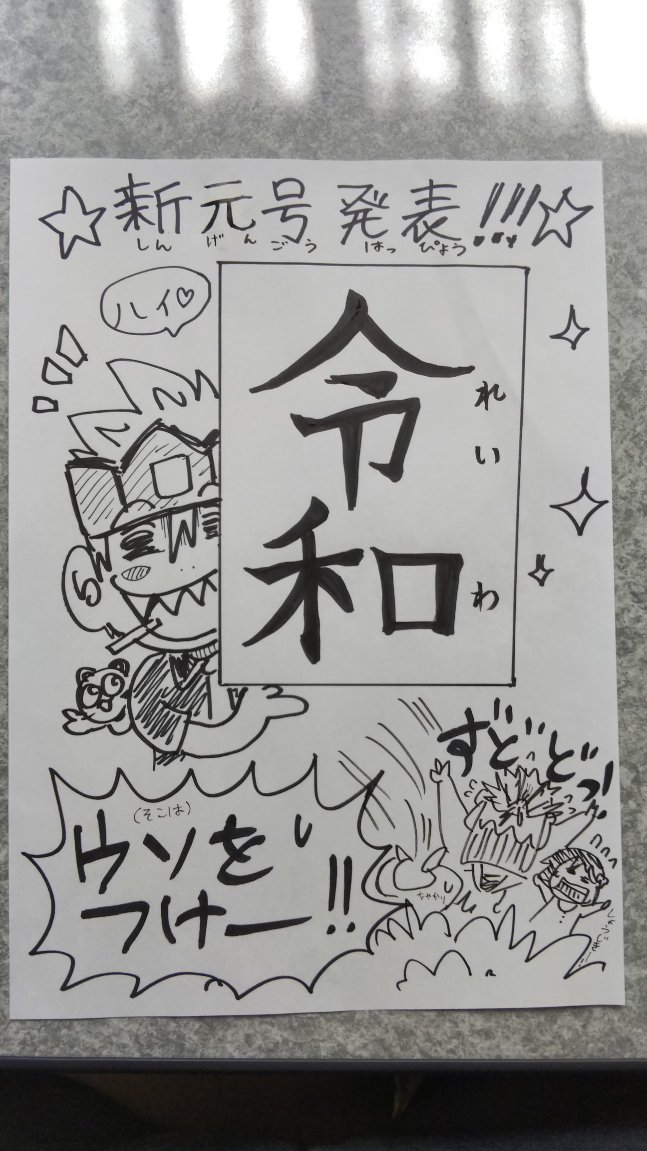 新元号発表!!!
しんげんごうはっぴょう
ハイ♡
令和
れいわ
5
ずどどどっ!
(そこは)
ウソを
つけーー!!
ちゃかり